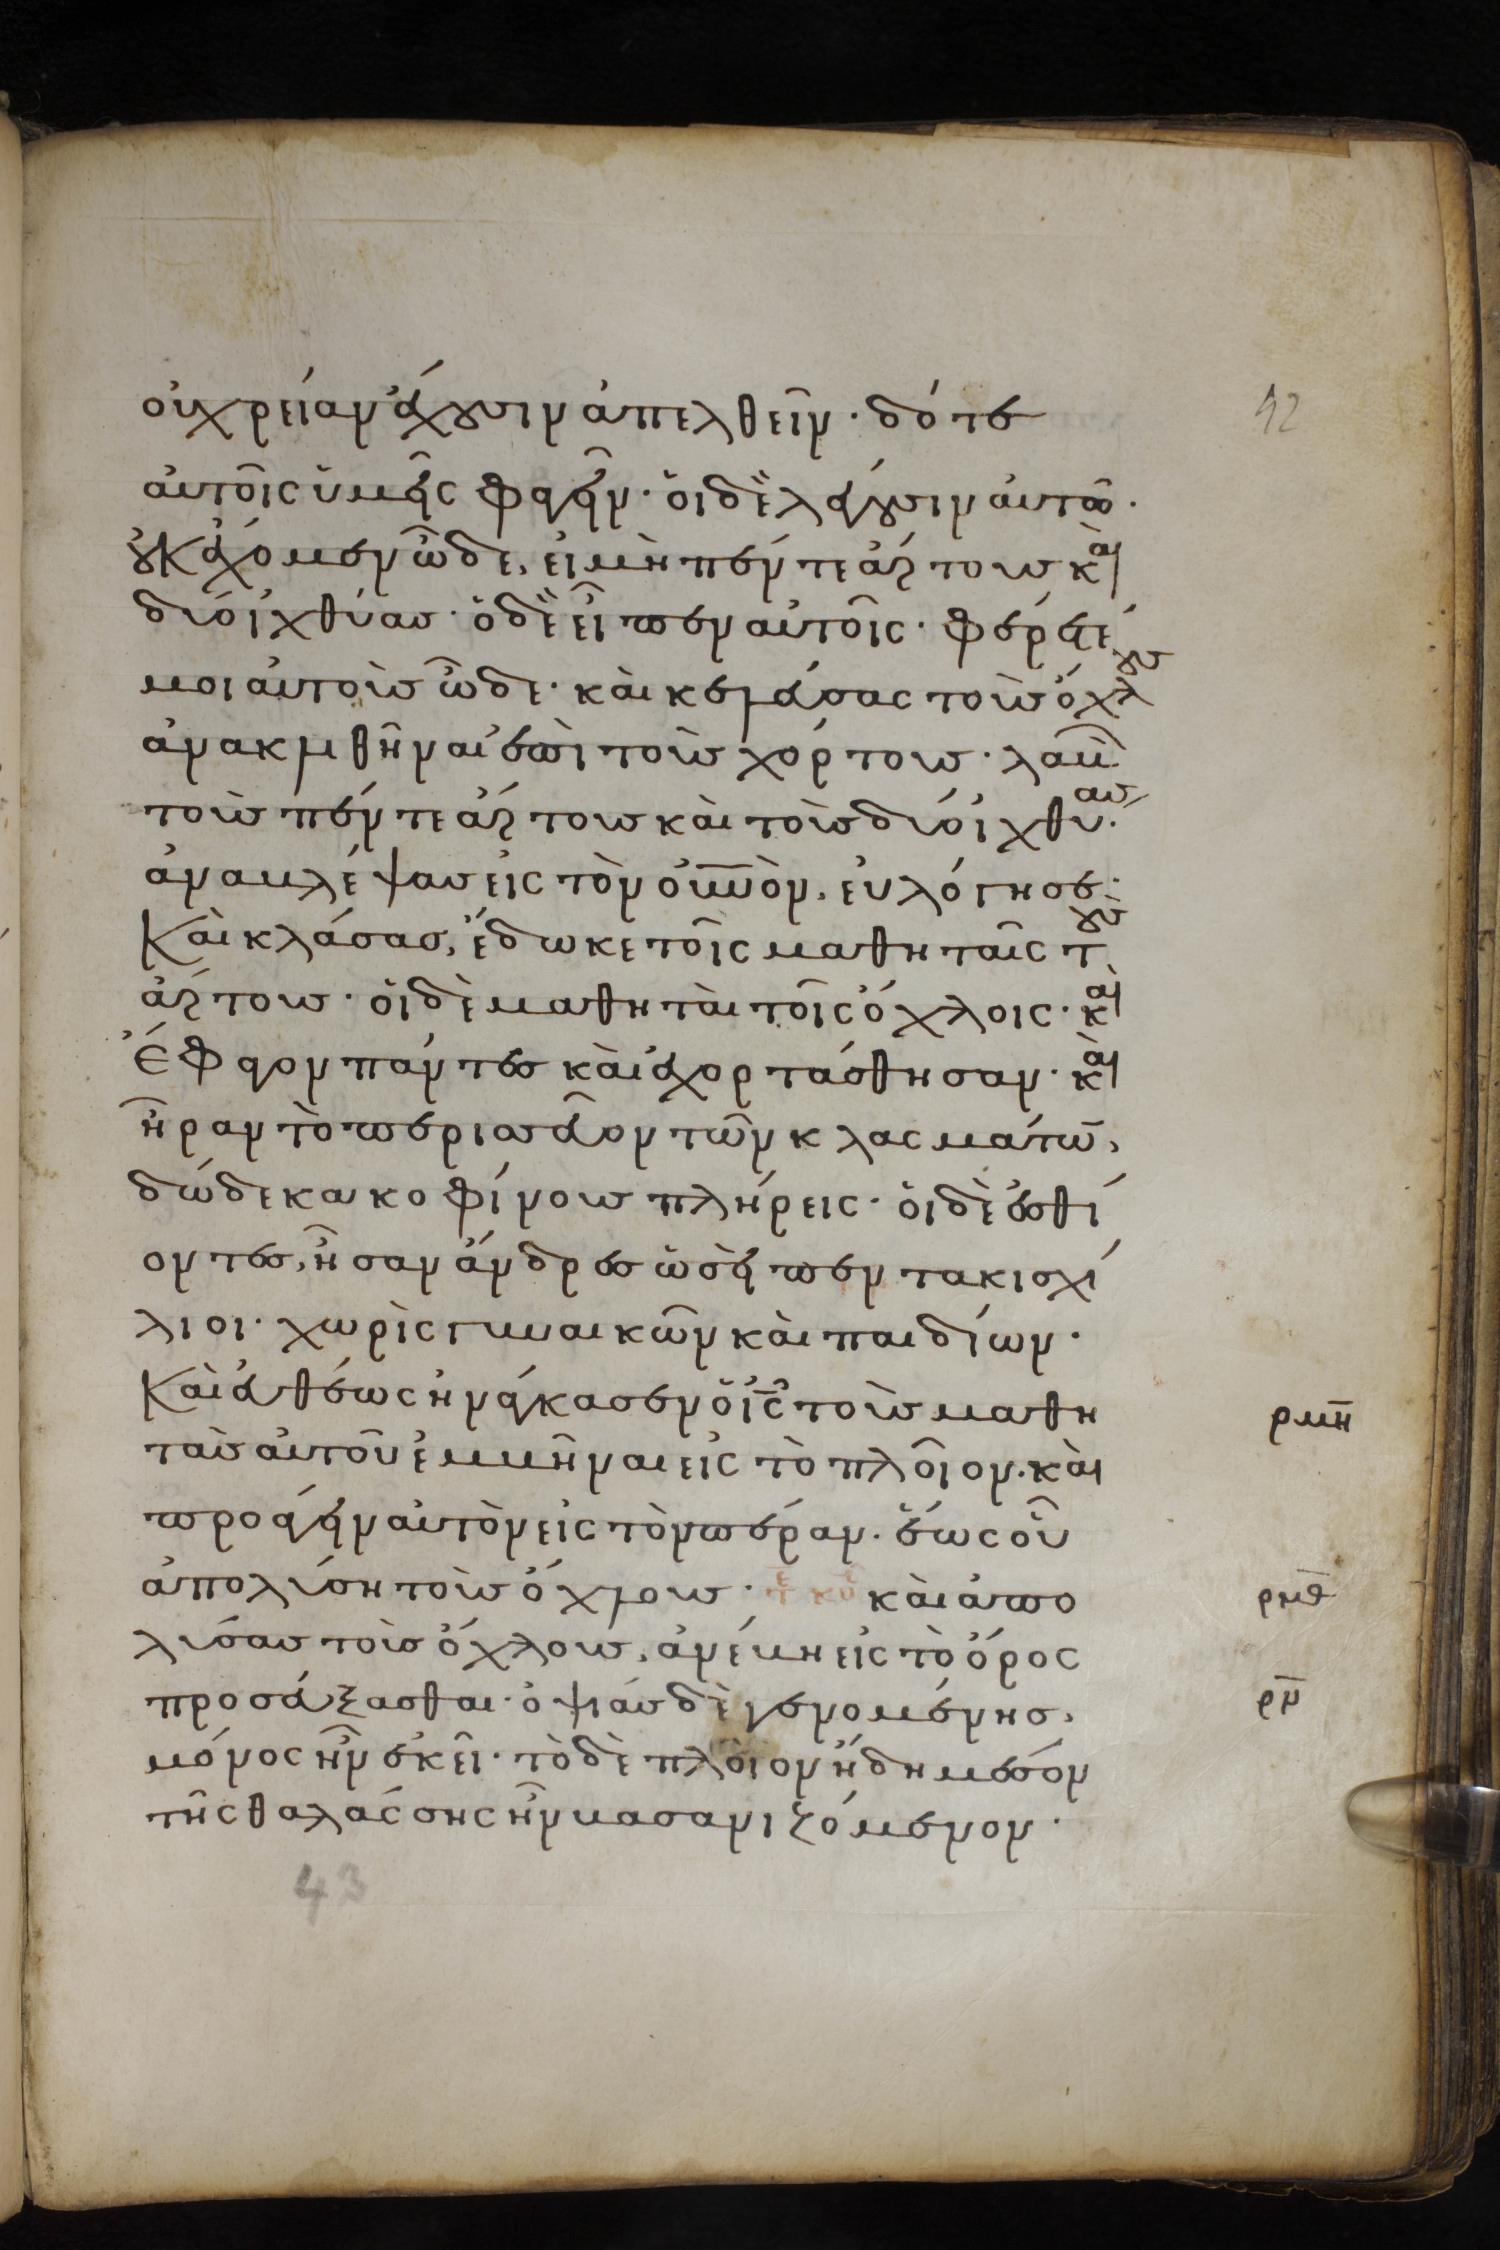 οὐ χρείαν ἔχουσιν ἀπελθεῖν· δότε
αὐτοῖς ὑμεῖς φαγεῖν· οἱ δὲ λέγουσιν αὐτῶ·
οὐκ ἔχομεν ὧδε, εἰ μὴ πέντε ἄρτους καὶ
δύο ἰχθύας· ὁ δὲ εἶπεν αὐτοῖς· φέρετέ
μοι αὐτοὺς ὧδε· καὶ κελεύσας τοὺς ὄχλους
ἀνακλιθῆναι ἐπὶ τοὺς χόρτους· λαβὼν
τοὺς πέντε ἄρτους καὶ τοὺς δύο ἰχθύας·
ἀναβλέψας εἰς τὸν οὐνὸν, εὐλόγησε·
Καὶ κλάσας, ἔδωκε τοῖς μαθηταῖς τοὺς
ἄρτους· οἱ δὲ μαθηταὶ τοῖς ὄχλοις· καὶ
ἔφαγον πάντες καὶ ἐχορτάσθησαν· καὶ
ἦραν τὸ περισσεῦον τῶν κλασμάτων,
δώδεκα κοφίνους πλήρεις· οἱ δὲ ἐσθί
οντες, ἦσαν ἄνδρες ὡσεὶ πεντακισχί
λιοι· χωρὶς γυναικῶν καὶ παιδίων·
Καὶ εὐθέως ἠνάγκασεν ὁ ις τοὺς μαθη
τὰς αὐτοῦ ἐμβῆναι εἰς τὸ πλοῖον· καὶ
ρμη
προάγειν αὐτὸν εἰς τὸ πέραν· ἕως οὗ
ἀπολύση τοὺς ὄχλους· τε κυ καὶ ἀπο
ρμθ
λύσας τοὺς ὄχλους, ἀνέβη εἰς τὸ ὄρος
προσεύξασθαι· ὀψίας δὲ γενομένης,
ρν
μόνος ἦν ἐκεῖ· τὸ δὲ πλοῖον ἤδη μέσον
τῆς θαλάσσης ἦν βασανιζόμενον·
42
43